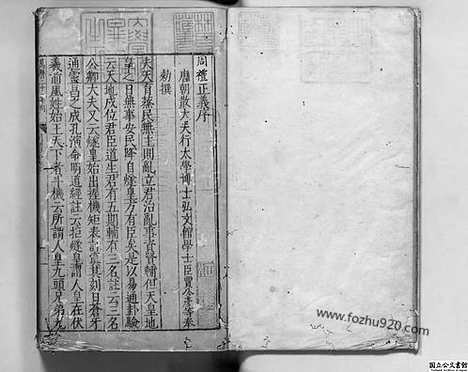 周禮正義序
唐朝散大夫行太學博士弘文館學士臣賈公彥等奉
勑撰
夫天育蒸民無主則亂立君治亂事資賢輔但天皇地
皇之日無事安民降自燧皇方有臣矣是以易通卦驗
云天地成位君臣道生君有五期輔有三名註云三名
公卿大夫又云燧皇始出握機矩表計寘其刻曰蒼牙
通靈昌之成孔演命明道經註云拒燧皇謂人皇在伏
羲前風姓始王天下者 機云所謂人皇九頭兄弟九
www.fozhu920.com
国立公文書館